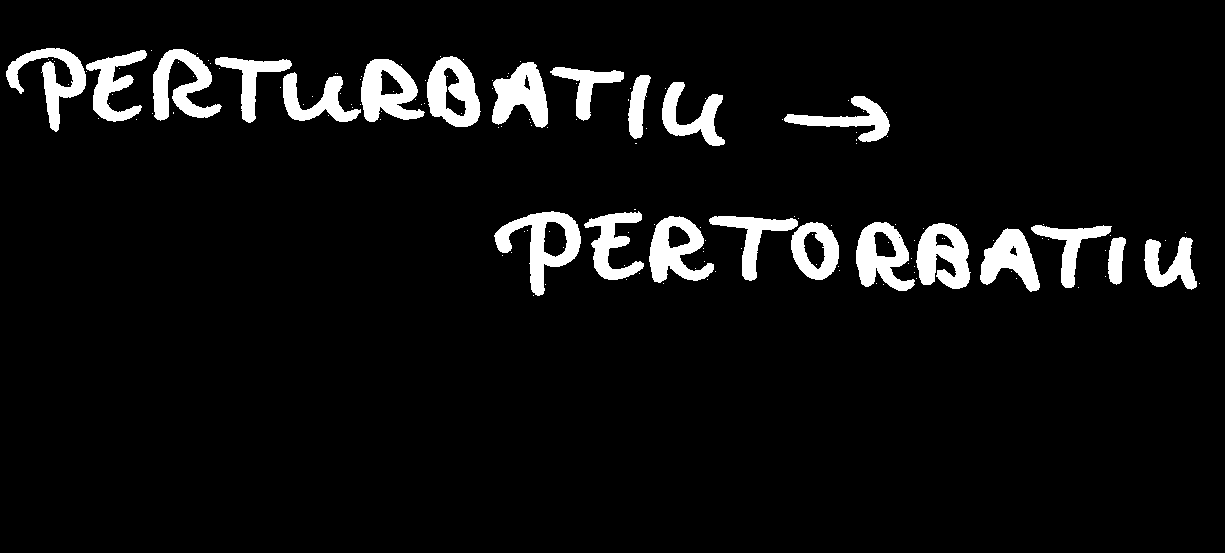 PERTURBATIU →
PERTORBATIU